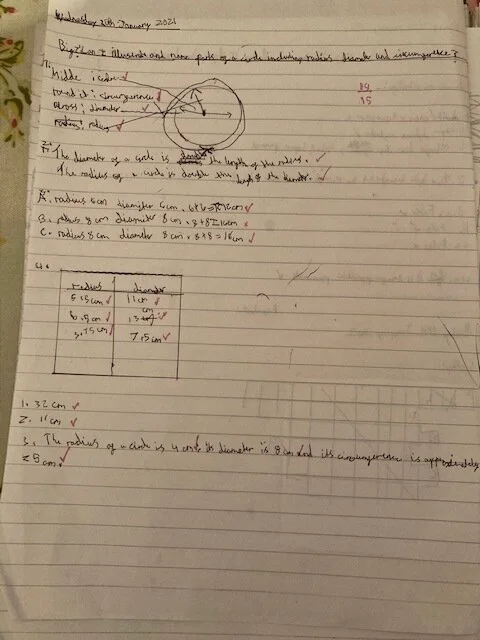 Wednesday 20th January 2021
Big Q: Can I illustrate and name parts of a circle including radius diameter and circumference?
1.
Middle : centre
round it : circumference
19
across : diameter
15
radius : radius
2. The diameter of a circle is double the length of the radius.
The radius of a circle is double the length of the diameter.
A. radius 6cm diameter 6cm. 6+6=12cm
B. radius 8cm diameter 8cm. 8+8=16cm
C. radius 8cm diameter 8cm. 8+8=16cm
4.
radius diameter
5.5cm 11cm
cm
6.5cm 13
3.75cm 7.5cm
1. 32cm
2. 11cm
3. The radius of a circle is 4 cm its diameter is 8cm and its circumference is approximately
25cm.